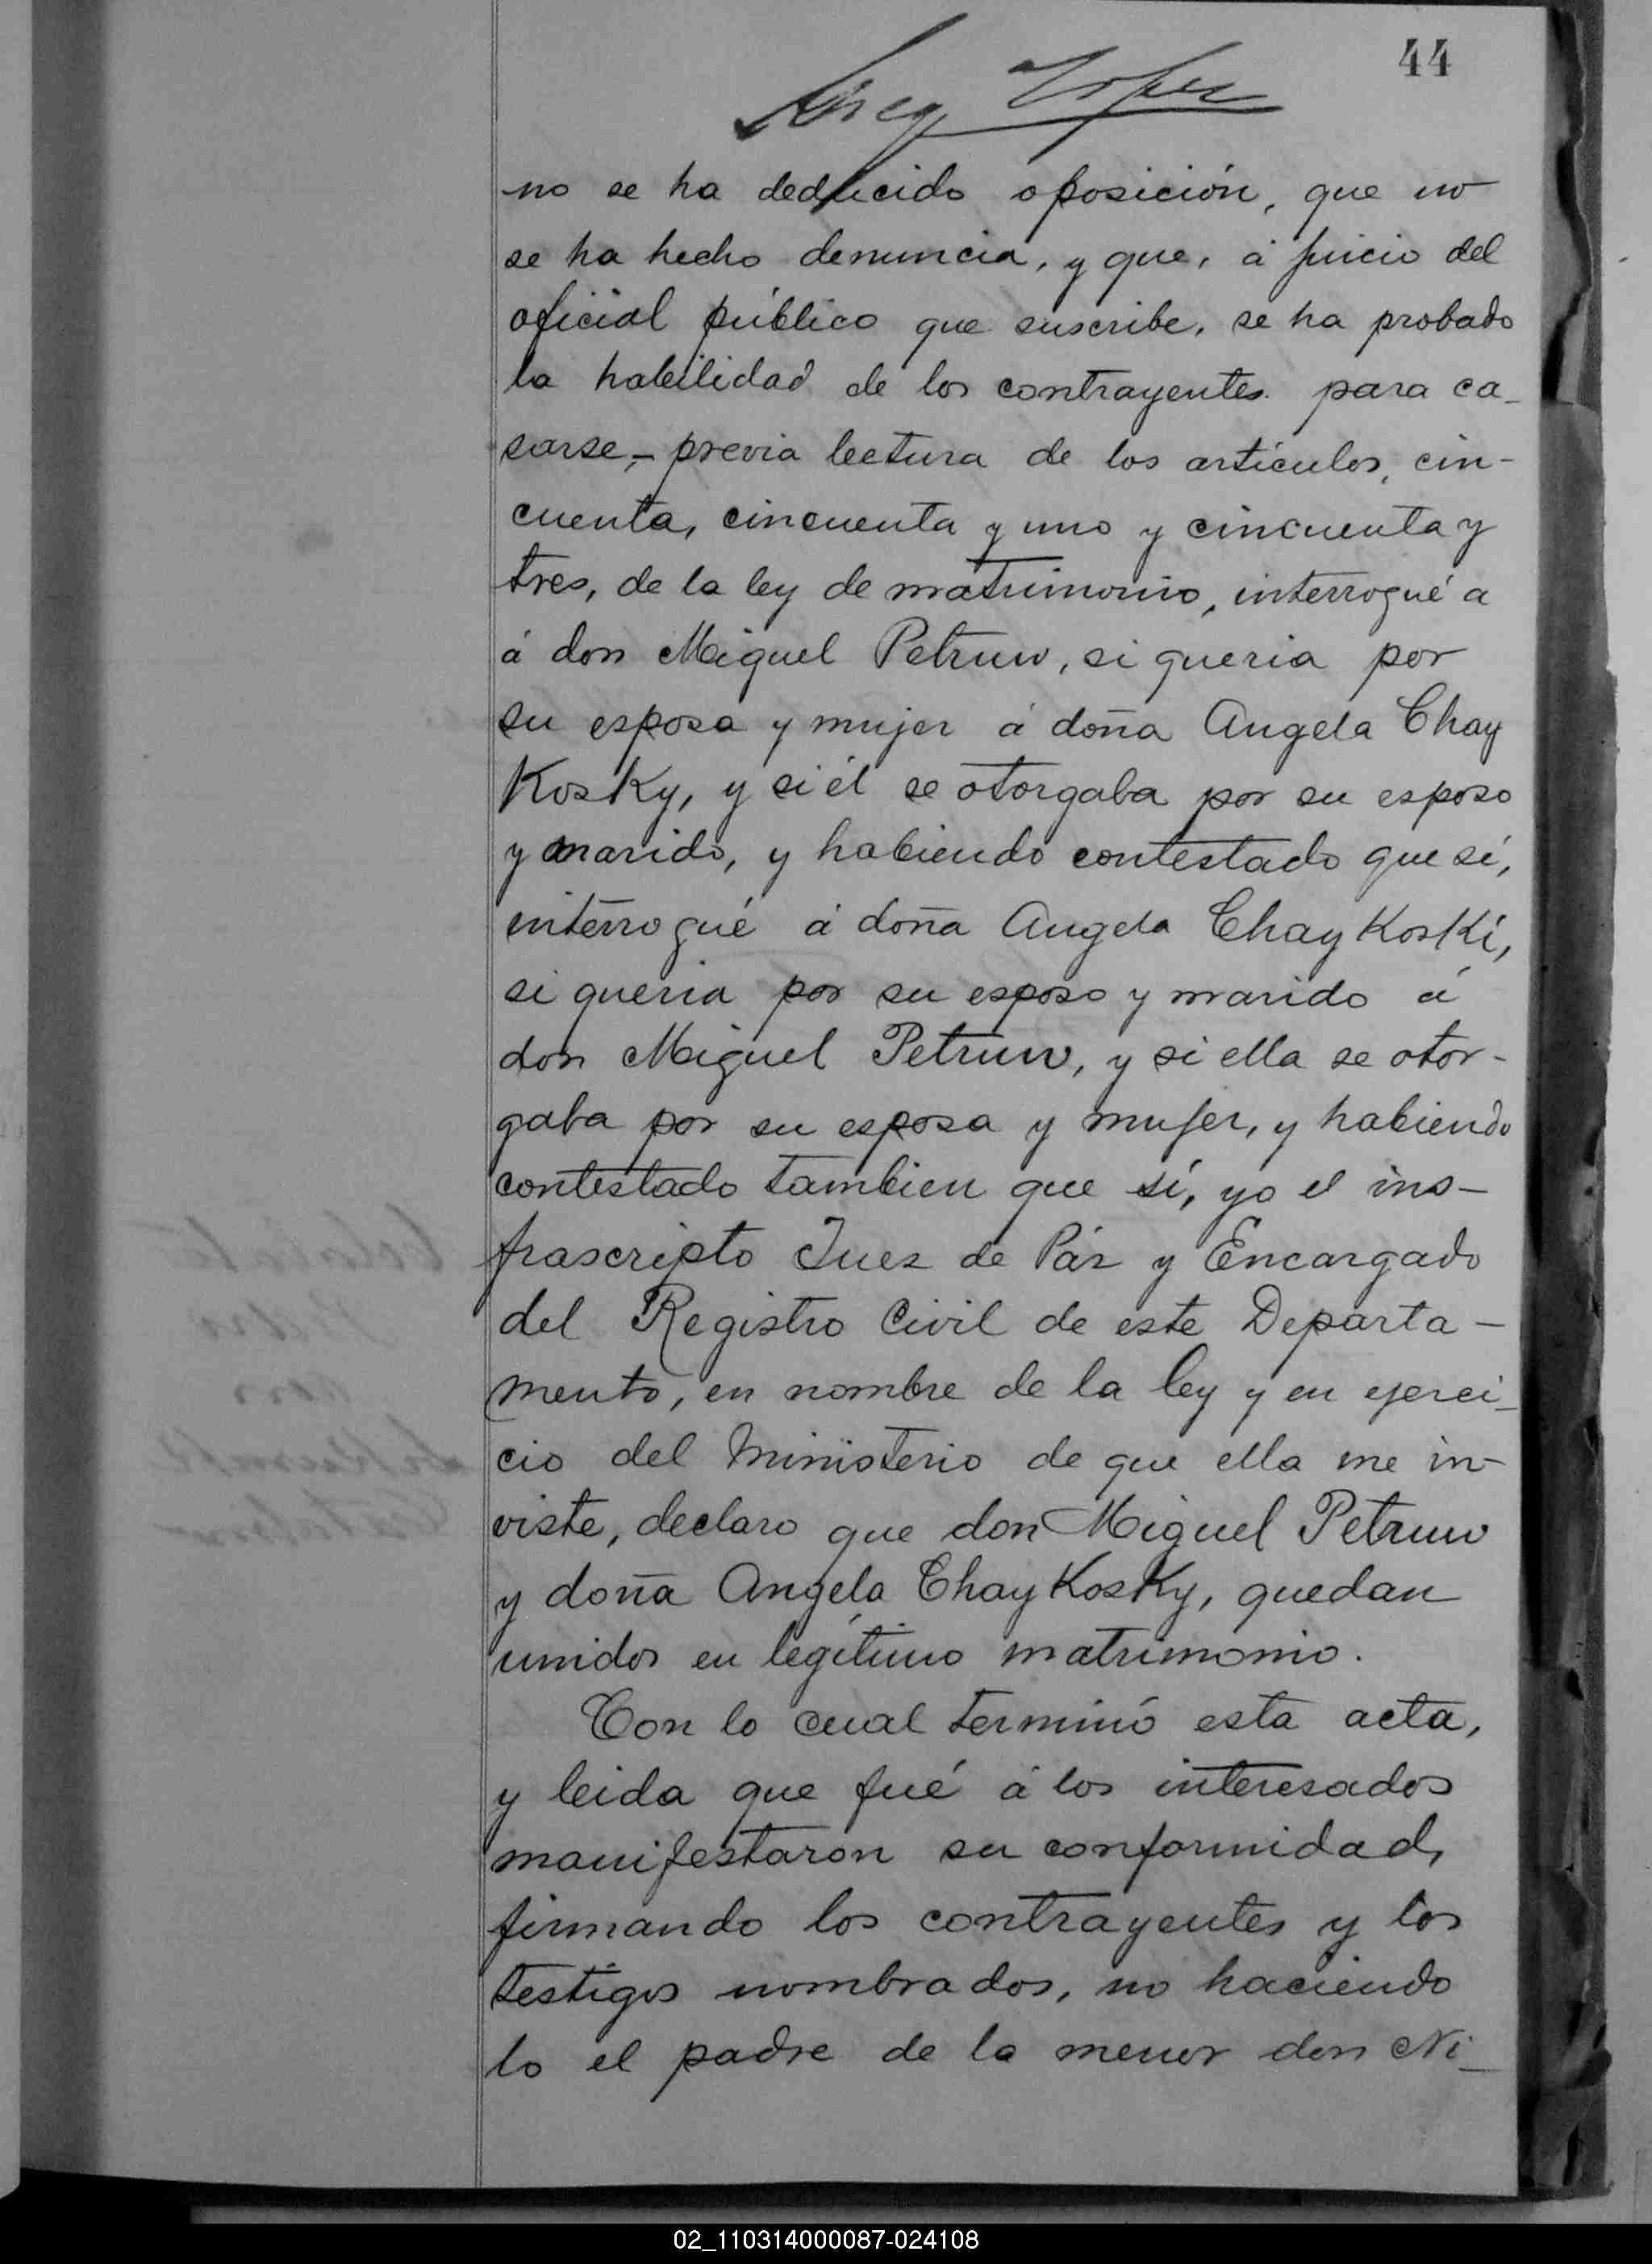 44
no se ha deducido oposición, que no
se ha hecho denuncia, y que, á juicio del
oficial público que suscribe, se ha probado
la habilidad de los contrayentes para ca-
sarse,- previa lectura de los artículos, cin-
cuenta, cincuenta y uno y cincuenta y
tres, de la ley de matrimonio, interrogué a
á don Miguel Petruw, si queria por
su esposa y mujer á doña Angela Chay
Kosky, y si él se otorgaba por su esposo
y marido, y habiendo contestado que sí,
interrogué á doña Angela Chay Koski,
si queria por su esposo y marido á
don Miguel Petruw, y si ella se otor-
gaba por su esposa y mujer, y habiendo
contestado tambien que sí, yo el ins-
frascripto Juez de Páz y Encargado
del Registro Civil de este Departa-
mento, en nombre de la ley y en ejerci-
cio del Ministerio de que ella me in-
viste, declaro que don Miguel Petruw
y doña Angela Chay Kosky, quedan
unidos en legítimo matrimonio.
Con lo cual terminó esta acta,
y leida que fué á los interesados
manifestaron su conformidad,
firmando los contrayentes y los
testigos nombrados, no haciendo
lo el padre de la menor don Ni-
02_110314000087-024108